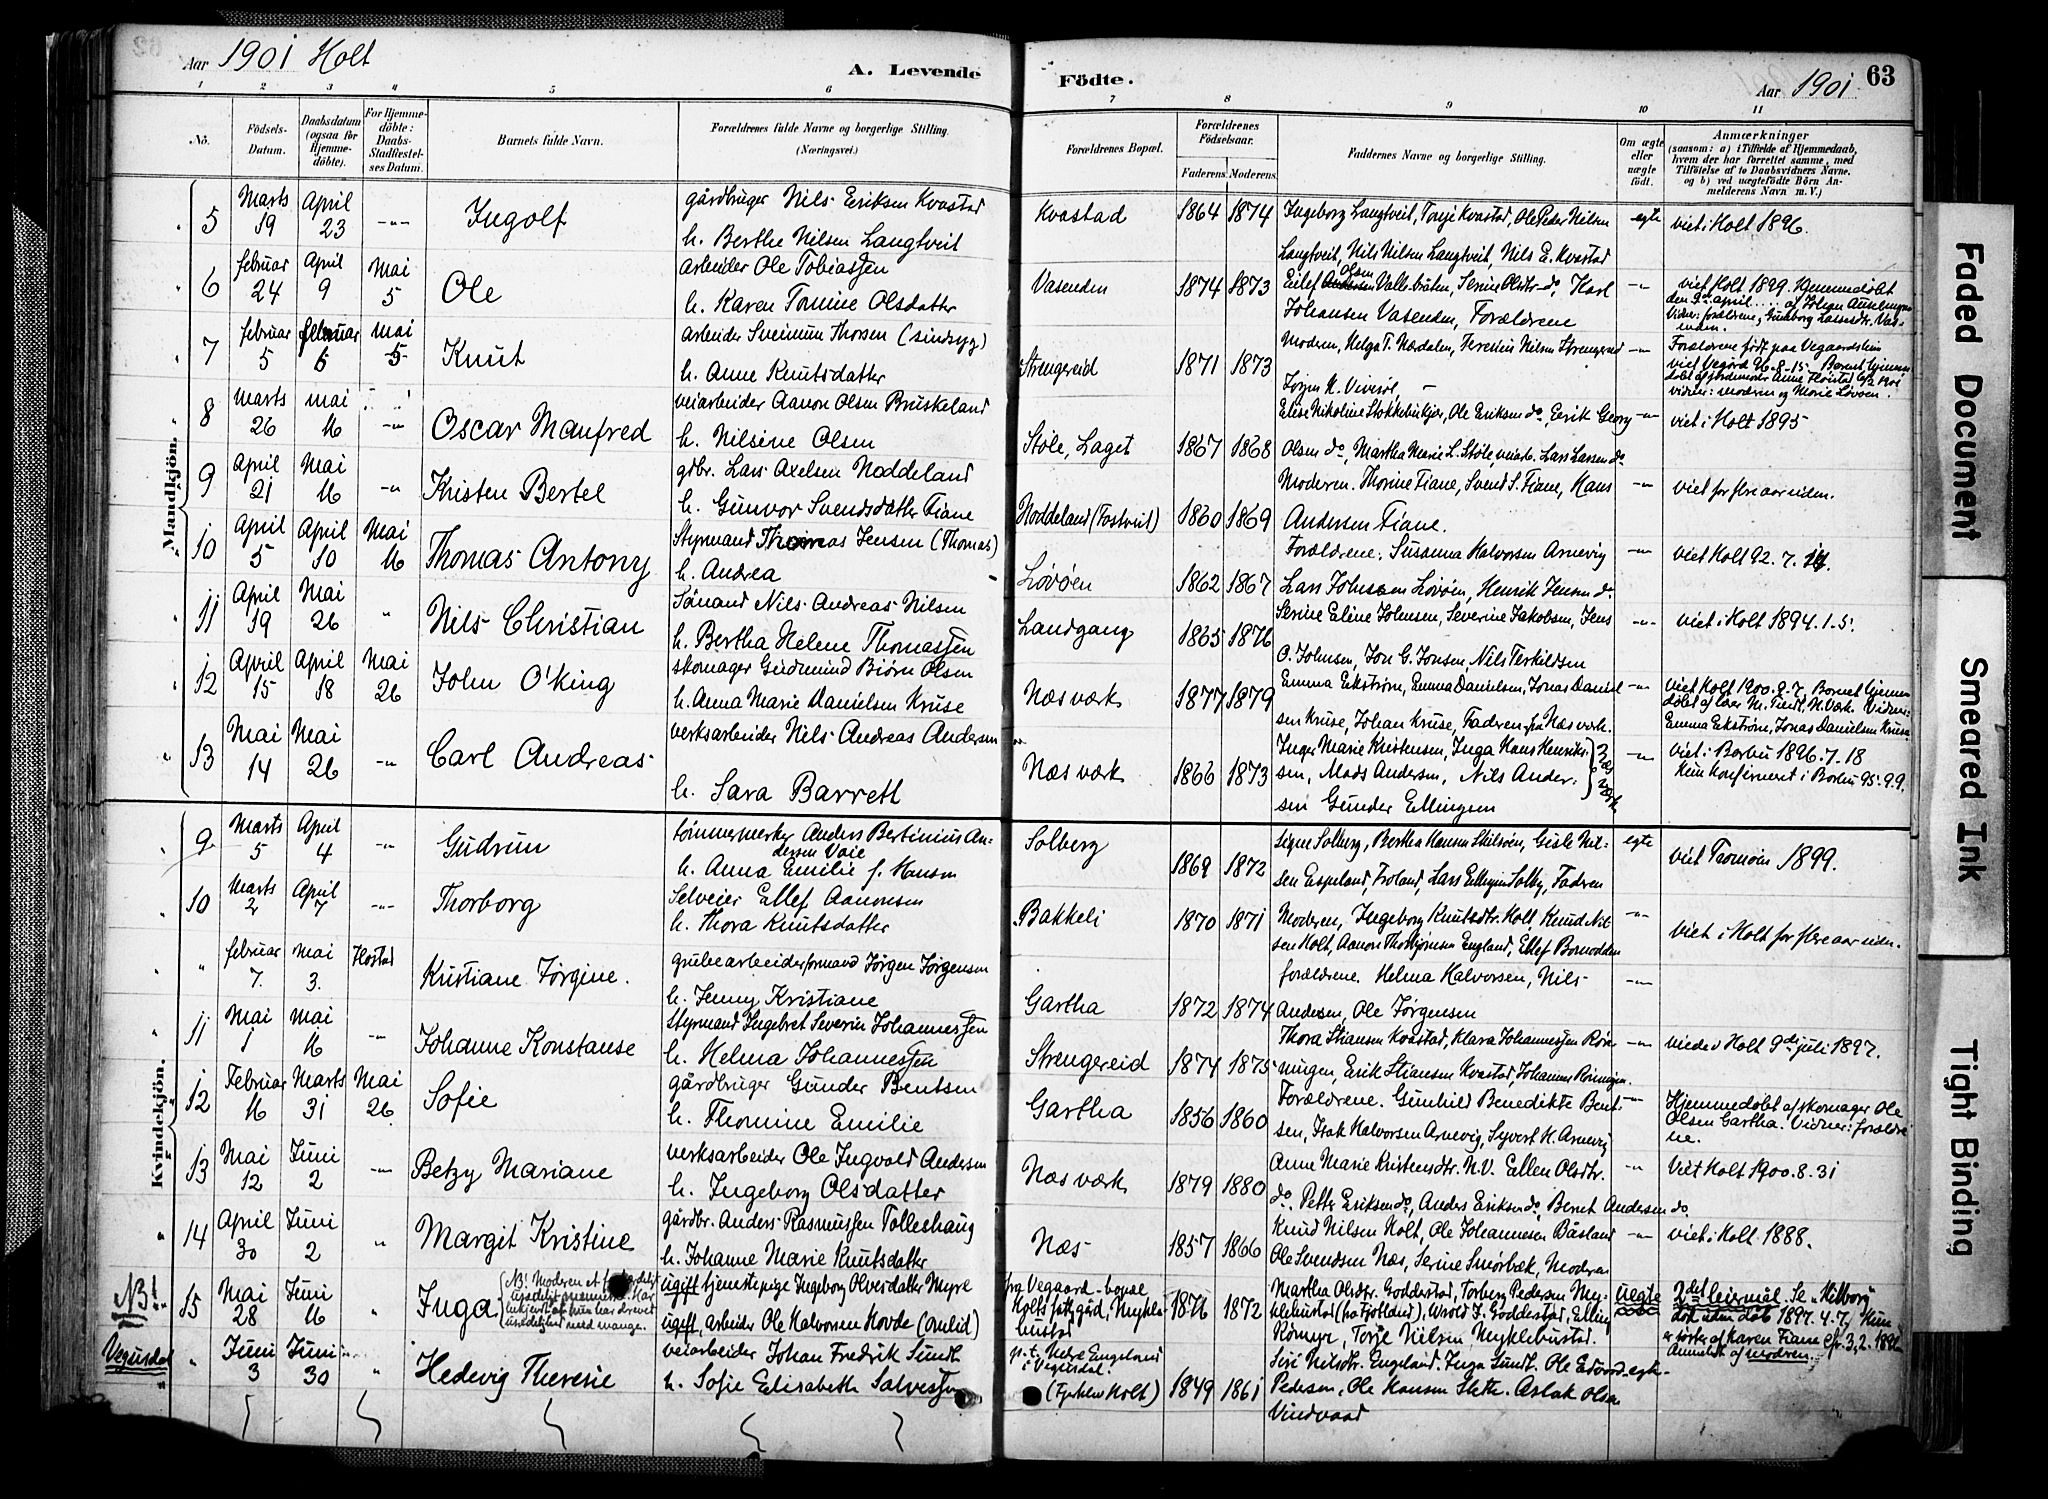 Aar 1901 Holt
A. Levende
Födte.
Aar 1901
63
1 2 3 4 5 6 7 8 9 10 11
No.
Födsels-Datum.
Daabsdatum (ogsaa for Hjemmedöbte).
For Hjemmedöbte: Daabs-Stadfæstelses Datum.
Barnets fulde Navn.
Forældrenes fulde Navne og borgerlige Stilling. (Næringsvei.)
Forældrenes Bopæl.
Forældrenes Födselsaar.
Faderens. Moderens.
Faddernes Navne og borgerlige Stilling.
Om ægte eller uægte födt.
Anmærkninger
(saasom: a) i Tilfælde af Hjemmedaab, hvem der har forrettet samme, med Tilföielse af to Daabsvidners Navne, og b) ved uægtefödte Börn Anmelderens Navn m. V.)
Mandkjön.
5 Marts 19 April 23 -"- Ingolf
gårdbruger Nils Eriksen Kvastad
h. Berthe Nilsen Langtveit
Kvastad 1864 1874
Ingeborg Langtveit, Tonje Kvastad, Ole Peder Nilsen
Langtveit, Nils Nilsen Langtveit, Nils E. Kvastad
egte viet i Holt 1896.
6 februar 24 April 9 Mai 5 Ole
arbeider Ole Tobiassen
h. Karen Tomine Olsdatter
Vasenden 1874 1873
Eilef Olsen Vallebråten, Serine Olsdtr do, Karl
Johansen Vasenden, Forældrene
-"- viet Holt 1899. Hjemmedøbt
den 9de april
Vidner: forældrene, Gunborg Larsesdtr. Vasenden.
7 februar 5 februar 6 mai 5 Knut
arbeider Sveinum Thorsen (sindsyg)
h. Anne Knutsdatter
Strengereid 1871 1873
Modern, Helga T. Nærdalen, Teresius Nilsen Strengereid
-"- Forældrene født paa Vegaardshein
viet Vegård 96-8-15. Barnet hjemmedøbt af jordemoder Anne Fløistad 6/2 1901
vidner: moderen og Marie Løvøen.
8 Marts 26 mai 16 -"- Oscar Manfred
veiarbeider Aanon Olsen Bruskeland
h. Nilsine Olsen
Støle, Laget 1867 1868
Elise Nikoline Stokkebukjær, Ole Eriksen do, Eerik Georg
Olsen do, Martha Marie L. Støle, veiarb. Lars Larsen do
-"- viet i Holt 1895
9 April 21 Mai 16 -"- Kristen Bertel
gdbr. Lars Axelsen Noddeland
h. Gunvor Svendsdatter Fiane
Noddeland (Fostveit) 1860 1869
Moderen. Thorine Fiane, Svend S. Fiane, Hans
Andersen Fiane.
-"- viet for flere aar siden.
10 April 5 April 10 Mai 16 Thomas Antony
Styrmand Thomas Jensen (Thomas)
h. Andrea
Løvøen 1862 1867
Forældrene, Susanna Halvorsen Arnevig
Lars Johnsen Løvøen, Henrik Jensen do
-"- viet Holt 92. 7. 14.
11 April 19 Mai 26 " Nils Christian
Sømand Nils Andreas Nilsen
h. Bertha Helene Thomassen
Landgang 1865 1876
Serine Eline Johnsen, Severine Jakobsen, Jens
O. Johnsen, Jon G. Jonsen, Nils Terkildsen
-"- viet i Holt 1894. 1-5.
12 April 15 April 18 Mai 26 John O'King
skomager Gudmund Biørn Olsen
h. Anna Marie Danielsen Kruse
Næs værk 1877 1879
Emma Ekstrøm, Emma Danielsen, Jonas Danielsen Kruse, Johan Kruse, Fadren fra Næs værk.
-"- viet Holt 1900. 9-7. Barnet hjemmedøbt af
Emma Ekstrøm, Jonas Danielsen Kruse
13 Mai 14 Mai 26 -"- Carl Andreas
verksarbeider Nils Andreas Andersen
h. Sara Barrett
Næs værk 1866 1873
Inger Marie Kristensen, Inga Hans Henriksen, Mads Andersen, Nils Andersen Gunder Ellingsen
Næs værk
-"- viet i Barbu 1896. 7-18
Kun konfirmeret i Barbu 95. 9.9.
Kvindekjön.
9 Marts 5 April 4 -"- Gudrun
tømmermerker Anders Bertinius Andersen Vaie
h. Anna Emilie f. Hansen
Solberg 1869 1872
Signe Solberg, Bertha Hansen Skilsøen, Gisle Nilsen Espeland, Froland, Lars Ellingsen Solby, Fadren
egte viet Tromøen 1899.
10 Marts 2 April 7 -"- Thorborg
Selveier Ellef Aanonsen
h. Thora Knutsdatter
Bakkeli 1870 1871
Moderen, Ingeborg Knutsdtr. Holt, Knud Nilsen Holt, Aanon Thorbjørnsen England, Ellef Bomodden
-"- viet i Holt for flere aar siden.
" februar 7. mai 3. Høstad Kristiane Jørgine.
grubearbeiderformand Jørgen Jørgensen
h. Jenny Kristiane
Gartha 1872 1874
forældrene. Helma Halvorsen, Nils
Andersen, Ole Jørgensen
-"-
11 Mai 1 mai 16 -"- Johanne Konstanse
Styrmand Ingebret Severin Johannessen
h. Helma Johannessen
Strengereid 1874 1875
Thora Stiansen Kvastad, Klara Johannessen Røinningen, Erik Stiansen Kvastad, Johannes Røiningen.
-"- viede i Holt 9de juli 1897.
12 Februar 16 Marts 31 Mai 26 Sofie
gårdbruger Gunder Bentsen
h. Thomine Emilie
Gartha 1856 1860
Forældrene. Gunhild Benedikte Bentsen, Isak Halvorsen Arnevig, Syvert H. Arnevig
-"- Hjemmedøbt af skomager Ole
Olsen Gartha. Vidner: forældrene.
13 Mai 12 Juni 2 -"- Betzy Mariane
verksarbeider Ole Ingvald Andersen
h. Ingeborg Olsdatter
Næs værk 1879 1880
Anne Marie Kristensdtr. N.V. Ellen Olsdtr.
do. Petter Eriksen do, Anders Eriksen do, Bernt Andersen do.
-"- Viet Holt 1900. 8. 31
14 April 30 Juni 2 " Margit Kristine
gårdbr. Anders Rasmussen Tolleshaug
h. Johanne Marie Knutsdatter
Næs 1857 1866
Knud Nilsen Holt, Ole Johannesen Båsland
Ole Svendsen Næs, Serine Smørbæk, Moderen
-"- viet i Holt 1888.
NB! 15 Mai 28 Juni 16 " Inga
ugift tjenestepige Ingeborg Olversdatter Myre
ugift, arbeider Ole Halvorsen Hovde (Omlid)
fra Vegaard - bopæl
Holts fattiggård, Myklebustad 1876 1872
Martha Olsdtr. Goddestad, Torberg Pedersen Myklebustad (fra Fjotland), Wrold J. Goddestad, Elling
Rømyr, Torje Nilsen Myklebustad.
uegte 2det leiermål.
født uden dåb 1897. 4-7.
Anmeldt af moderen.
Vegusdal " Juni 3 Juni 30 " Hedevig Theresie
veiarbeider Johan Fredrik Sundt
h. Sofie Elisabeth Salvessen
p.t. Nedre Engeland
i Vegusdal.
(Fjorden Holt) 1849 1861
Siri Nilsdtr. Engeland. Inga Sundt. Ole Edvard
Pedersen, Ole Hansen Slette. Aslak Olsen
Vindvaad
egte
Faded Document
Smeared Ink
Tight Binding